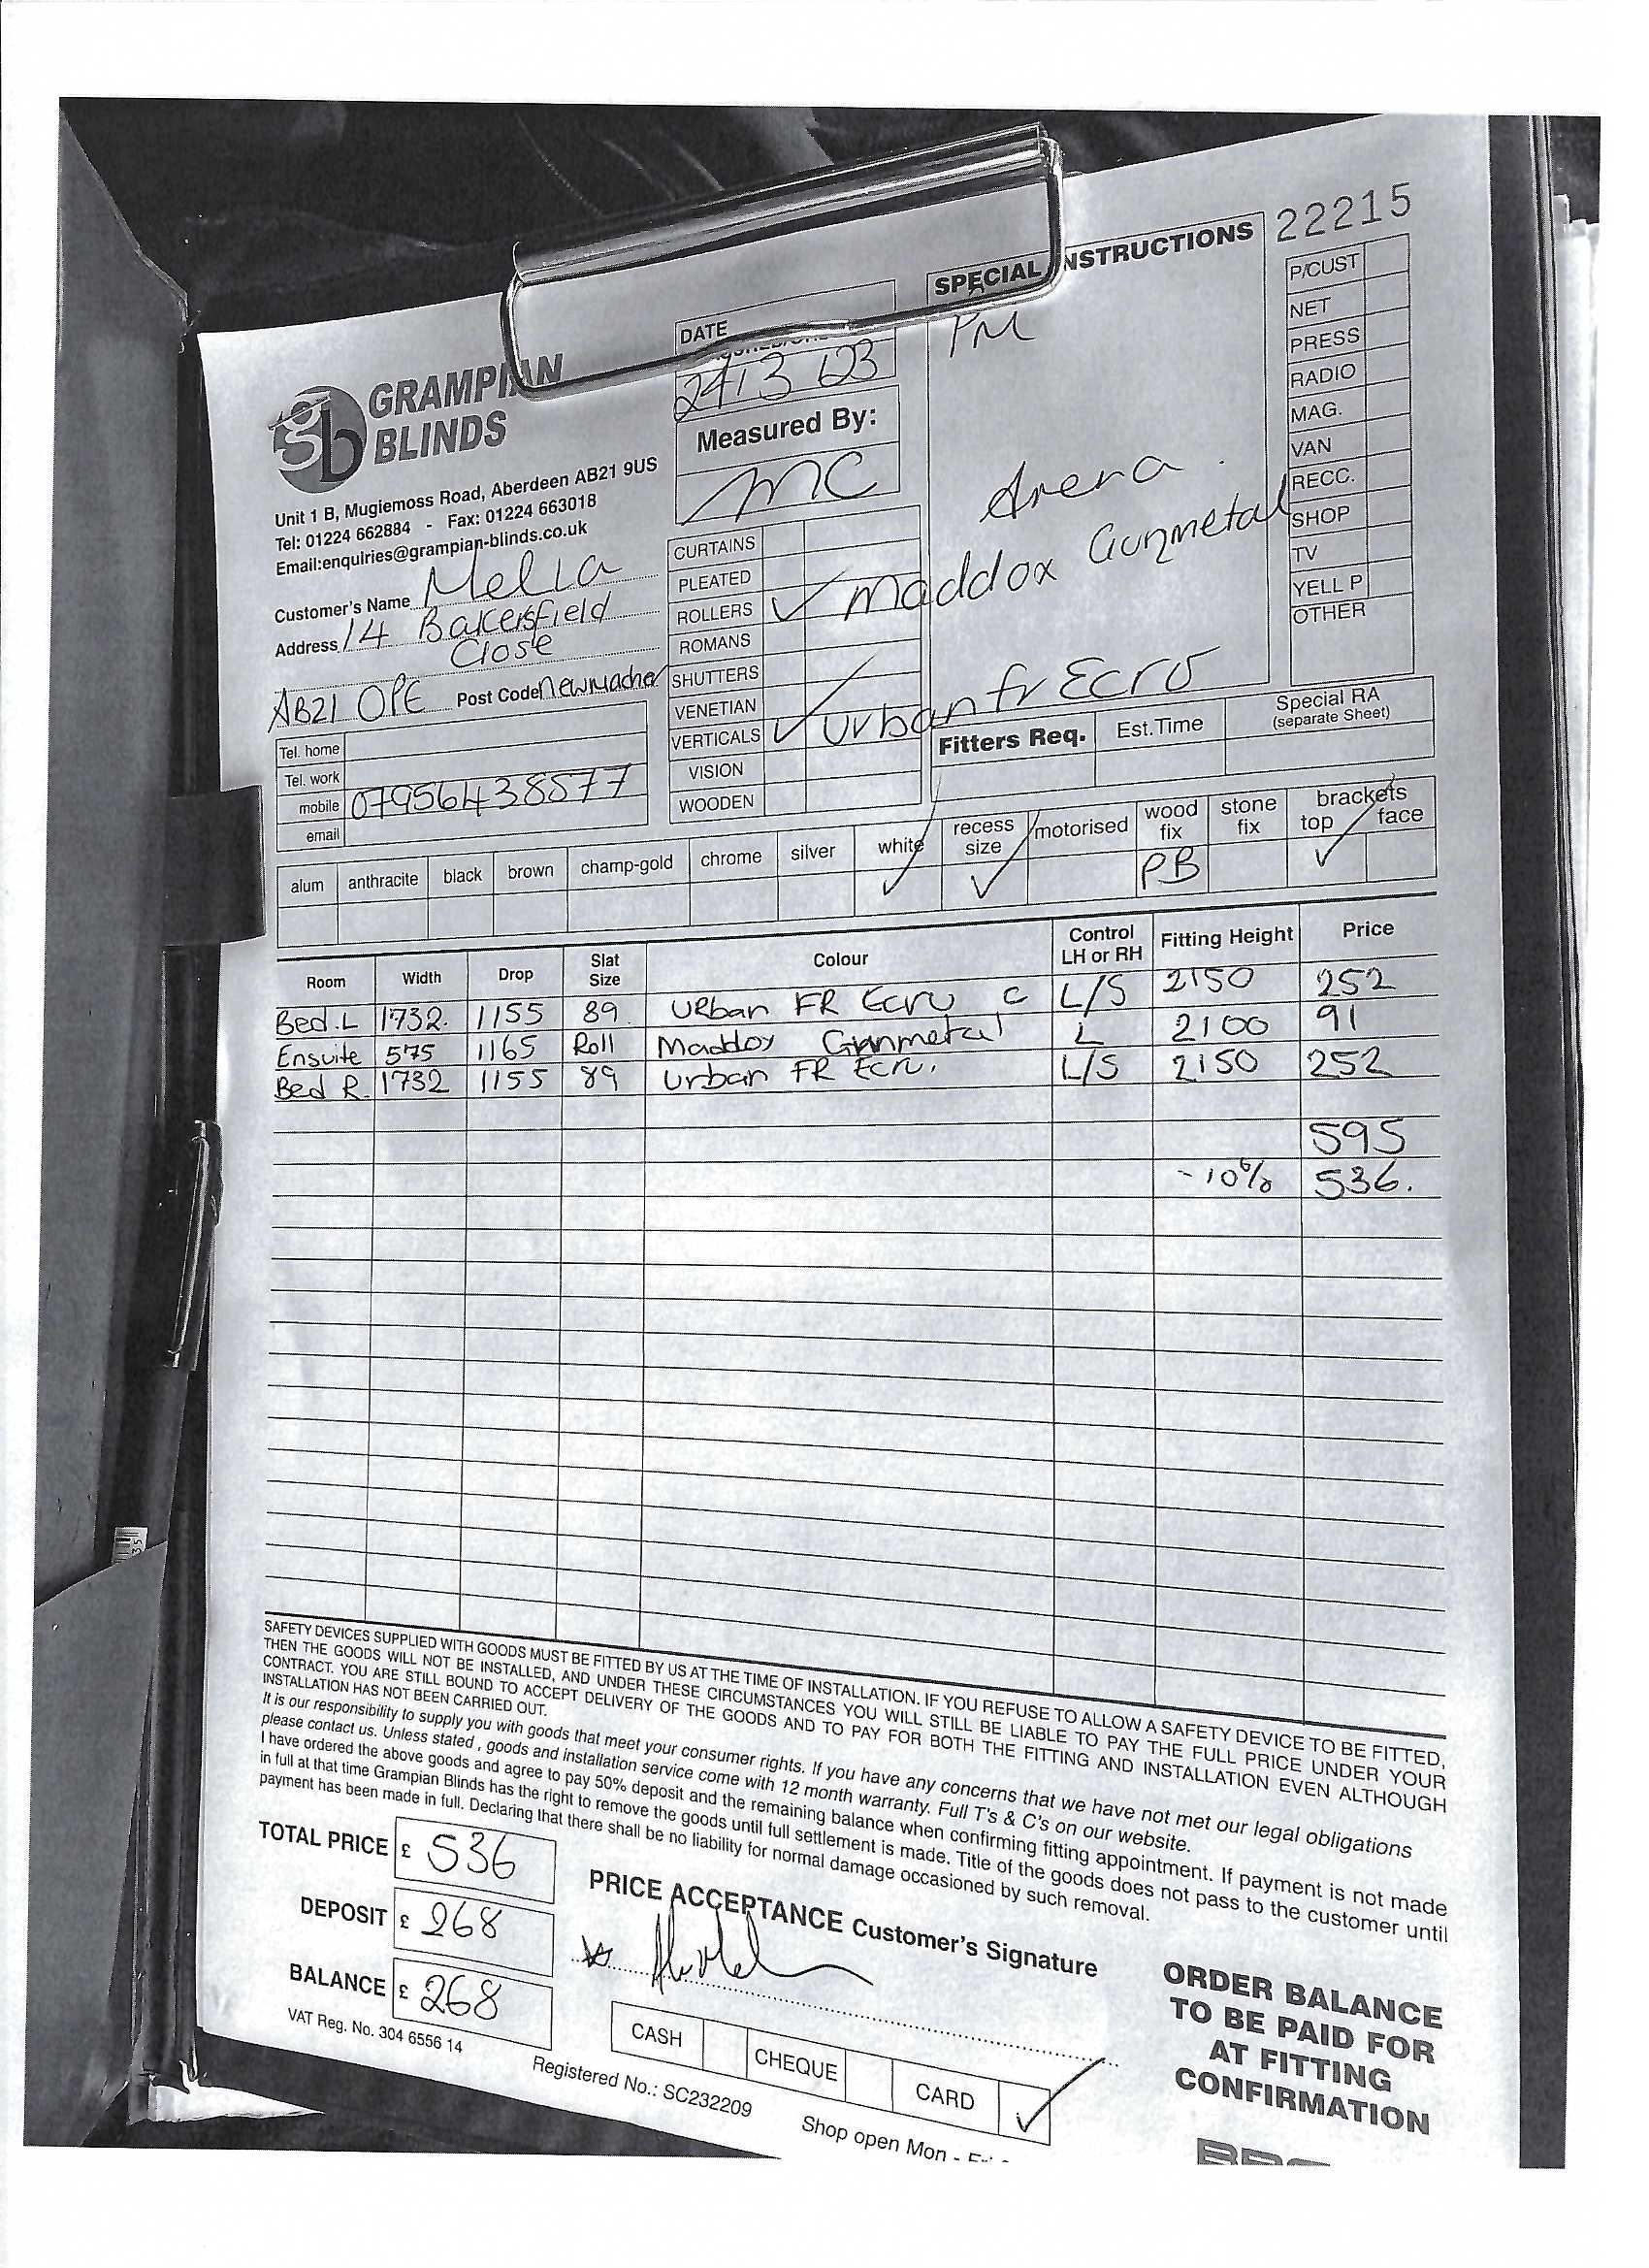 22215
SPECIAL INSTRUCTIONS
PM
Arena
Maddox Gunmetal
Urban fr Ecro
P/CUST
NET
PRESS
RADIO
MAG.
VAN
RECC.
SHOP
TV
YELL P
OTHER
GRAMPIAN
BLINDS
Unit 1 B, Mugiemoss Road, Aberdeen AB21 9US
Tel: 01224 662884 - Fax: 01224 663018
Email:enquiries@grampian-blinds.co.uk
DATE
Measured By:
MC
Customer's Name Melia
Address 14 Bakersfield
Close
AB21 OPE Post Code Newmachar
Tel. home
Tel. work
mobile 07956438577
email
CURTAINS
PLEATED
ROLLERS ✓
ROMANS
SHUTTERS
VENETIAN
VERTICALS ✓
VISION
WOODEN
Fitters Req. Est.Time Special RA
(separate Sheet)
alum anthracite black brown champ-gold chrome silver white recess size motorised wood fix stone fix brackets top face
✓ ✓ PB ✓
Room Width Drop Slat Size Colour Control LH or RH Fitting Height Price
Bed.L 1732. 1155 89 Urban FR Ecru C L/S 2150 252
Ensuite 575 1165 Roll Maddox Gunmetal L 2100 91
Bed R. 1732 1155 89 Urban FR Ecru. L/S 2150 252
595
-10% 536.
SAFETY DEVICES SUPPLIED WITH GOODS MUST BE FITTED BY US AT THE TIME OF INSTALLATION. IF YOU REFUSE TO ALLOW A SAFETY DEVICE TO BE FITTED,
THEN THE GOODS WILL NOT BE INSTALLED, AND UNDER THESE CIRCUMSTANCES YOU WILL STILL BE LIABLE TO PAY THE FULL PRICE UNDER YOUR
CONTRACT. YOU ARE STILL BOUND TO ACCEPT DELIVERY OF THE GOODS AND TO PAY FOR BOTH THE FITTING AND INSTALLATION EVEN ALTHOUGH
INSTALLATION HAS NOT BEEN CARRIED OUT.
It is our responsibility to supply you with goods that meet your consumer rights. If you have any concerns that we have not met our legal obligations
please contact us. Unless stated , goods and installation service come with 12 month warranty. Full T's & C's on our website.
I have ordered the above goods and agree to pay 50% deposit and the remaining balance when confirming fitting appointment. If payment is not made
in full at that time Grampian Blinds has the right to remove the goods until full settlement is made. Title of the goods does not pass to the customer until
payment has been made in full. Declaring that there shall be no liability for normal damage occasioned by such removal.
TOTAL PRICE £ 536
DEPOSIT £ 268
BALANCE £ 268
PRICE ACCEPTANCE Customer's Signature
CASH CHEQUE CARD ✓
ORDER BALANCE
TO BE PAID FOR
AT FITTING
CONFIRMATION
VAT Reg. No. 304 6556 14
Registered No.: SC232209
Shop open Mon -